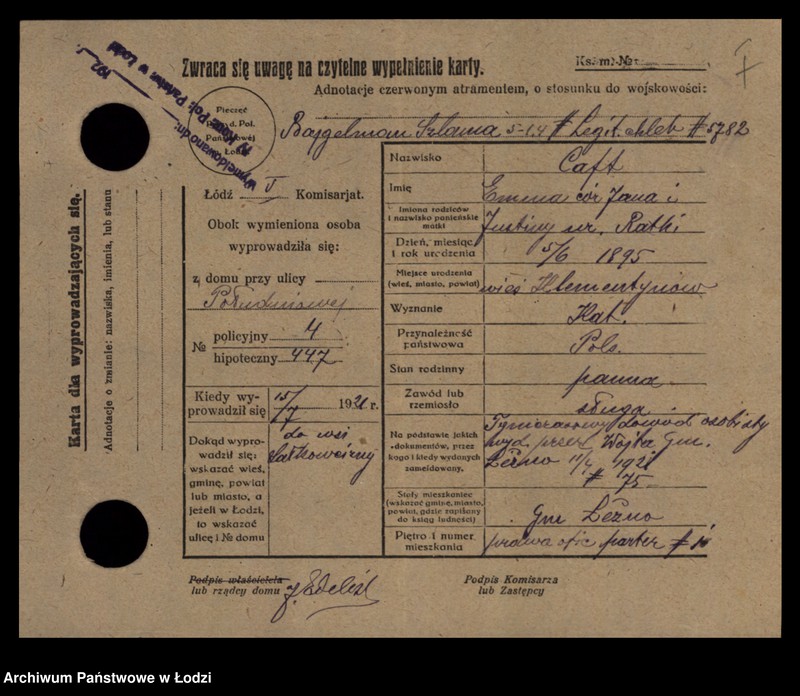 Zwraca się uwagę na czytelne wypełnienie karty.
Ks. m. №
Adnotacje czerwonym atramentem, o stosunku do wojskowości:
192
Wymeldowano dn.
Kom. Pol. Państw. w Łodzi
Pieczęć
Pol.
Państwowej
Łodzi
Bajgelman Szlama 5-1.4 # Legit. chleb # 5782
Karta dla wyprowadzających się.
Adnotacje o zmianie: nazwiska, imienia, lub stanu
Łódź V Komisarjat.
Obok wymieniona osoba
wyprowadziła się:
z domu przy ulicy
Południowej
№ policyjny 4
hipoteczny 447
Kiedy wyprowadził się 15/7 1921 r.
Dokąd wyprowadził się:
wskazać wieś,
gminę, powiat
lub miasto, a
jeżeli w Łodzi,
to wskazać
ulicę i № domu
do wsi
Nazwisko Caft
Imię Emma cór Jana i
Imiona rodziców
i nazwisko panieńskie
matki
Justiny ur. Ratki
Dzień, miesiąc
i rok urodzenia
5/6 1895
Miejsce urodzenia
(wieś, miasto, powiat)
wieś Klementynów
Wyznanie Kat.
Przynależność
państwowa
Pols.
Stan rodzinny panna
Zawód lub
rzemiosło
sługa
Na podstawie jakich
dokumentów, przez
kogo i kiedy wydanych
zameldowany.
Tymczasowy dowód osobisty
wyd. przez Wójta Gm.
Leźno 1921
# 75
Stały mieszkaniec
(wskazać gminę, miasto,
powiat, gdzie zapisany
do ksiąg ludności)
Gm Leźno
Piętro i numer
mieszkania
prawa ofic parter #
Podpis właściciela
lub rządcy domu
Podpis Komisarza
lub Zastępcy
Archiwum Państwowe w Łodzi